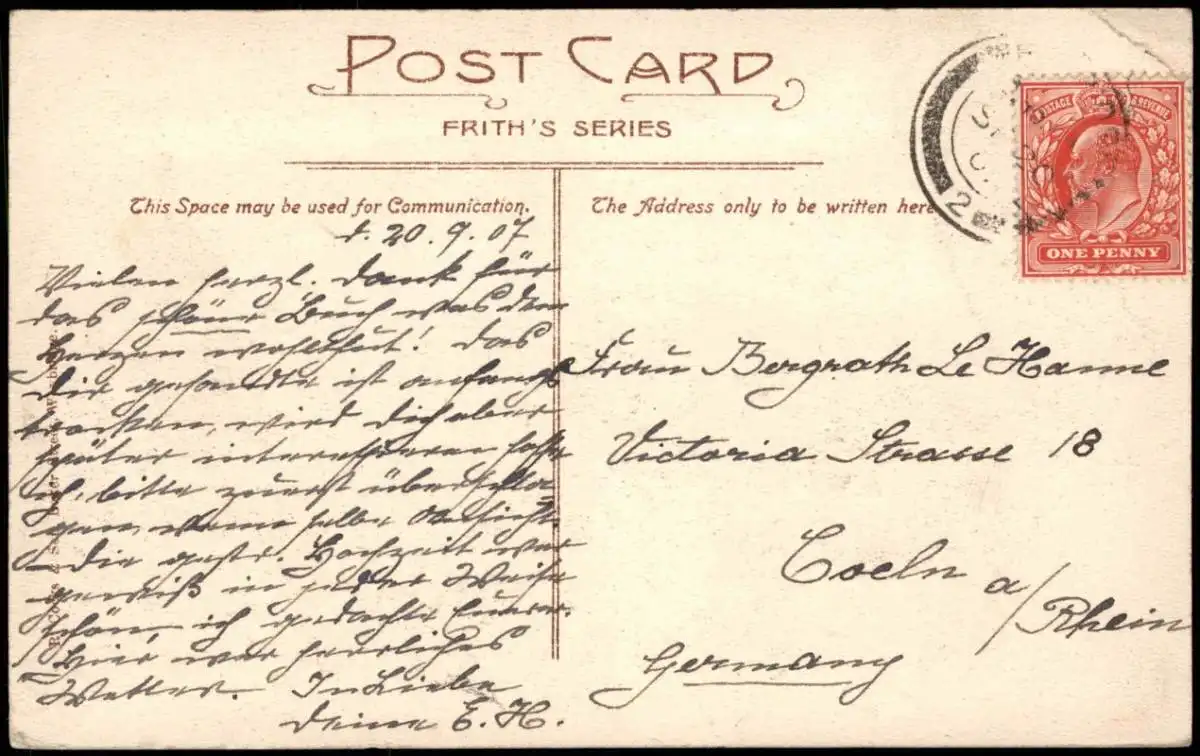 POST CARD
FRITH'S SERIES
This Space may be used for Communication.
The Address only to be written here
d. 20. 9. 07
Vielen herzl. Dank für
das schöne Buch was dem
Herzen wohlthut! Das
Dir gesandte ist anfangs
trocken, wird Dich aber
später interessieren hoffe
ich, bitte zuerst überschla
gen, wenn selbe
Die gestr. Hochzeit war
gewiß in jeder Weise
schön, ich gedachte Eurer.
Hier war herrliches
Wetter. In Liebe
Deine E. H.
POSTAGE & REVENUE
ONE PENNY
2
Frau Bergrath Le Hanne
Victoria Strasse 18
Coeln a/
Rhein
Germany